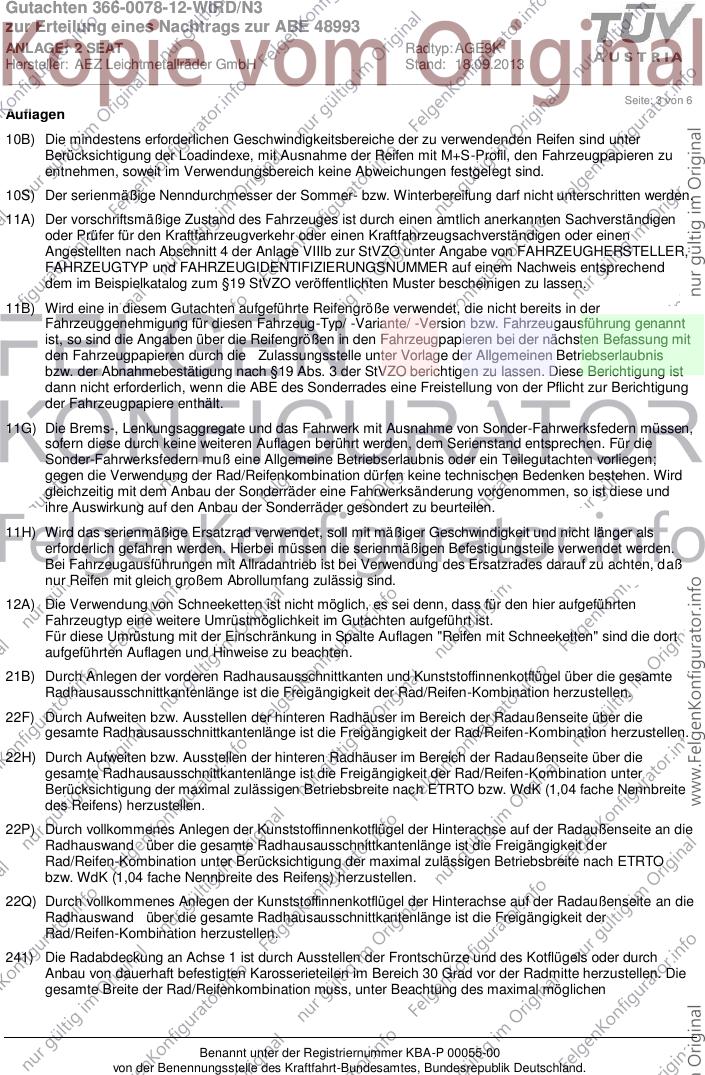 Gutachten 366-0078-12-WIRD/N3
zur Erteilung eines Nachtrags zur ABE 48993
ANLAGE: 2 SEAT
Radtyp: AGE9K
Hersteller: AEZ Leichtmetallräder GmbH
Stand: 18.09.2013
TÜV
AUSTRIA
Kopie vom Original
Seite: 3 von 6
Auflagen
10B) Die mindestens erforderlichen Geschwindigkeitsbereiche der zu verwendenden Reifen sind unter
Berücksichtigung der Loadindexe, mit Ausnahme der Reifen mit M+S-Profil, den Fahrzeugpapieren zu
entnehmen, soweit im Verwendungsbereich keine Abweichungen festgelegt sind.
10S) Der serienmäßige Nenndurchmesser der Sommer- bzw. Winterbereifung darf nicht unterschritten werden.
11A) Der vorschriftsmäßige Zustand des Fahrzeuges ist durch einen amtlich anerkannten Sachverständigen
oder Prüfer für den Kraftfahrzeugverkehr oder einen Kraftfahrzeugsachverständigen oder einen
Angestellten nach Abschnitt 4 der Anlage VIIIb zur StVZO unter Angabe von FAHRZEUGHERSTELLER,
FAHRZEUGTYP und FAHRZEUGIDENTIFIZIERUNGSNUMMER auf einem Nachweis entsprechend
dem im Beispielkatalog zum §19 StVZO veröffentlichten Muster bescheinigen zu lassen.
11B) Wird eine in diesem Gutachten aufgeführte Reifengröße verwendet, die nicht bereits in der
Fahrzeuggenehmigung für diesen Fahrzeug-Typ/ -Variante/ -Version bzw. Fahrzeugausführung genannt
ist, so sind die Angaben über die Reifengrößen in den Fahrzeugpapieren bei der nächsten Befassung mit
den Fahrzeugpapieren durch die Zulassungsstelle unter Vorlage der Allgemeinen Betriebserlaubnis
bzw. der Abnahmebestätigung nach §19 Abs. 3 der StVZO berichtigen zu lassen. Diese Berichtigung ist
dann nicht erforderlich, wenn die ABE des Sonderrades eine Freistellung von der Pflicht zur Berichtigung
der Fahrzeugpapiere enthält.
11G) Die Brems-, Lenkungsaggregate und das Fahrwerk mit Ausnahme von Sonder-Fahrwerksfedern müssen,
sofern diese durch keine weiteren Auflagen berührt werden, dem Serienstand entsprechen. Für die
Sonder-Fahrwerksfedern muß eine Allgemeine Betriebserlaubnis oder ein Teilegutachten vorliegen;
gegen die Verwendung der Rad/Reifenkombination dürfen keine technischen Bedenken bestehen. Wird
gleichzeitig mit dem Anbau der Sonderräder eine Fahrwerksänderung vorgenommen, so ist diese und
ihre Auswirkung auf den Anbau der Sonderräder gesondert zu beurteilen.
11H) Wird das serienmäßige Ersatzrad verwendet, soll mit mäßiger Geschwindigkeit und nicht länger als
erforderlich gefahren werden. Herbei müssen die serienmäßigen Befestigungsteile verwendet werden.
Bei Fahrzeugausführungen mit Allradantrieb ist bei Verwendung des Ersatzrades darauf zu achten, daß
nur Reifen mit gleich großem Abrollumfang zulässig sind.
12A) Die Verwendung von Schneeketten ist nicht möglich, es sei denn, dass für den hier aufgeführten
Fahrzeugtyp eine weitere Umrüstmöglichkeit im Gutachten aufgeführt ist.
Für diese Umrüstung mit der Einschränkung in Spalte Auflagen "Reifen mit Schneeketten" sind die dort
aufgeführten Auflagen und Hinweise zu beachten.
21B) Durch Anlegen der vorderen Radhausausschnittkanten und Kunststoffinnenkotflügel über die gesamte
Radhausausschnittkantenlänge ist die Freigängigkeit der Rad/Reifen-Kombination herzustellen.
22F) Durch Aufweiten bzw. Ausstellen der hinteren Radhäuser im Bereich der Radaußenseite über die
gesamte Radhausausschnittkantenlänge ist die Freigängigkeit der Rad/Reifen-Kombination herzustellen.
22H) Durch Aufweiten bzw. Ausstellen der hinteren Radhäuser im Bereich der Radaußenseite über die
gesamte Radhausausschnittkantenlänge ist die Freigängigkeit der Rad/Reifen-Kombination unter
Berücksichtigung der maximal zulässigen Betriebsbreite nach ETRTO bzw. WdK (1,04 fache Nennbreite
des Reifens) herzustellen.
22P) Durch vollkommenes Anlegen der Kunststoffinnenkotflügel der Hinterachse auf der Radaußenseite an die
Radhauswand über die gesamte Radhausausschnittkantenlänge ist die Freigängigkeit der
Rad/Reifen-Kombination unter Berücksichtigung der maximal zulässigen Betriebsbreite nach ETRTO
bzw. WdK (1,04 fache Nennbreite des Reifens) herzustellen.
22Q) Durch vollkommenes Anlegen der Kunststoffinnenkotflügel der Hinterachse auf der Radaußenseite an die
Radhauswand über die gesamte Radhausausschnittkantenlänge ist die Freigängigkeit der
Rad/Reifen-Kombination herzustellen.
241) Die Radabdeckung an Achse 1 ist durch Ausstellen der Frontschürze und des Kotflügels oder durch
Anbau von dauerhaft befestigten Karosserieteilen im Bereich 30 Grad vor der Radmitte herzustellen. Die
gesamte Breite der Rad/Reifenkombination muss, unter Beachtung des maximal möglichen
Benannt unter der Registriernummer KBA-P 00055-00
von der Benennungsstelle des Kraftfahrt-Bundesamtes, Bundesrepublik Deutschland.
FELGEN
KONFIGURATOR
FelgenKonfigurator.info
www.FelgenKonfigurator.info
nur gültig im Original